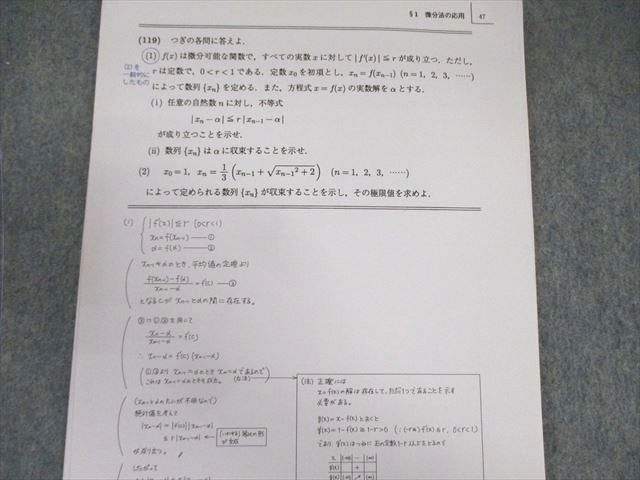 §1 微分法の応用 47
(119) つぎの各問に答えよ.
(1) f(x) は微分可能な関数で, すべての実数 x に対して |f'(x)| ≦ r が成り立つ. ただし,
(2)を
一般的に
したもの
r は定数で, 0 < r < 1 である. 定数 x₀ を初項とし, xₙ = f(xₙ₋₁) (n = 1, 2, 3, ……)
によって数列 {xₙ} を定める. また, 方程式 x = f(x) の実数解を α とする.
(i) 任意の自然数 n に対し, 不等式
|xₙ − α| ≦ r |xₙ₋₁ − α|
が成り立つことを示せ.
(ii) 数列 {xₙ} は α に収束することを示せ.
(2) x₀ = 1, xₙ = 1/3 (xₙ₋₁ + √(xₙ₋₁² + 2)) (n = 1, 2, 3, ……)
によって定められる数列 {xₙ} が収束することを示し, その極限値を求めよ.
(1) |f'(x)| ≦ r (0<r<1)
xₙ = f(xₙ₋₁) ―①
α = f(α) ―②
xₙ₋₁≠αのとき、平均値の定理より
(f(xₙ₋₁)−f(α))/(xₙ₋₁−α) = f'(c) ―③
となるcが xₙ₋₁とαの間に存在する。
③に①②を用いて
(xₙ−α)/(xₙ₋₁−α) = f'(c)
∴ xₙ−α = f'(c)(xₙ₋₁−α)
(①②より xₙ₋₁=αのとき xₙ=αであるので
これは xₙ₋₁=αのときも成立。)
絶対値を考えて
|xₙ−α| = |f'(c)||xₙ₋₁−α|
≦ r|xₙ₋₁−α|
が成り立つ。
したがって
(注) 正確には
x=f(x)の解は存在して、ただ1つであることを示す
必要がある。
g(x) = x−f(x) とおくと
g'(x) = 1−f'(x) ≧ 1−r > 0 (∵ (-r≦) f'(x) ≦ r, 0<r<1)
であり、g'(x)はつねに正の定数1-r以上をとるので
x (-∞) … (∞)
g'(x) +
g(x) (-∞) ↗ (∞)